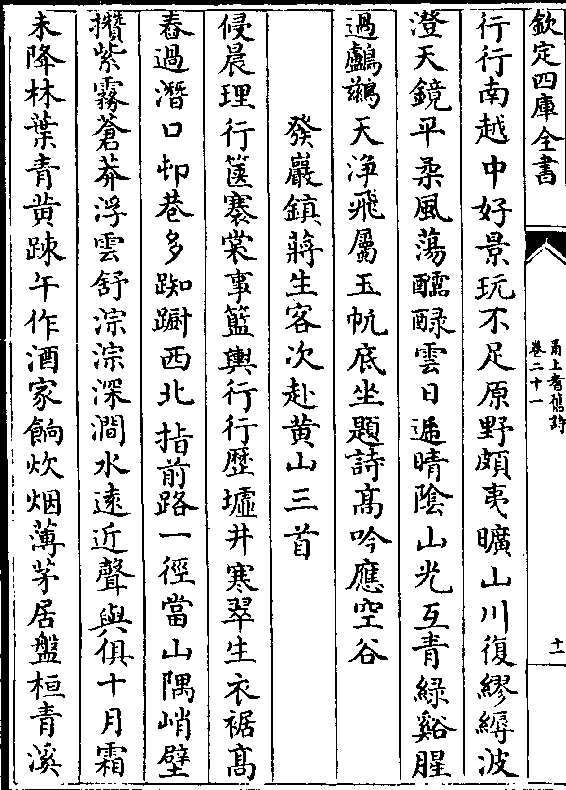 欽定四庫全書
甬上耆舊詩
卷二十一
十一
行行南越中好景玩不足原野頗夷曠山川復繆縟波
澄天鏡平柔風蕩醽醁雲日遞晴陰山光互青綠谿腥
過鸕鷀天淨飛屬玉帆底坐題詩高吟應空谷
發巖鎮蔣生客次赴黃山三首
侵晨理行篋褰裳事籃輿行行歷墟井寒翠生衣裾高
舂過潛口邨巷多踟蹰西北指前路一徑當山隅峭壁
攢紫霧蒼莽浮雲舒淙淙深澗水遠近聲與俱十月霜
未降林葉青黃踈午作酒家餉炊烟薄茅居盤桓青溪